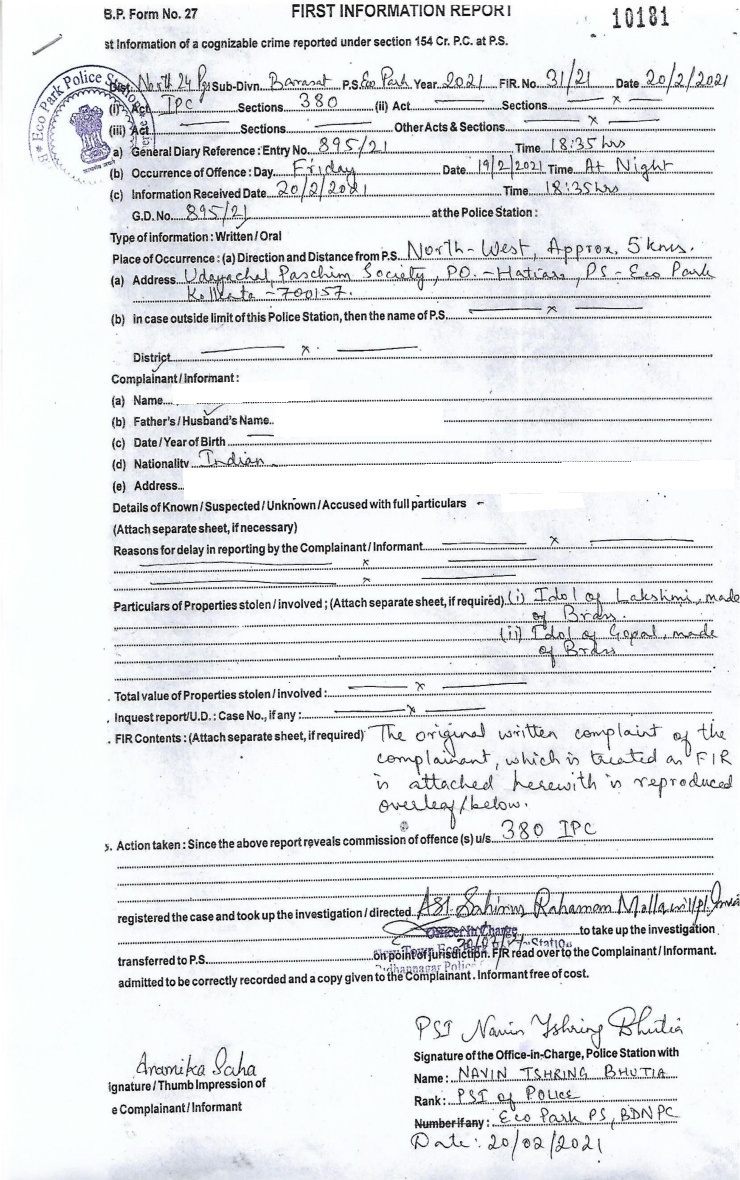 B.P. Form No. 27
FIRST INFORMATION REPORT
10181
st Information of a cognizable crime reported under section 154 Cr. P.C. at P.S.
Eco Park Police Station
Dist. North 24 Pgs Sub-Divn. Barasat P.S. Eco Park Year 2021 FIR. No. 31/21 Date 20/2/2021
(i) Act IPC Sections 380 (ii) Act — Sections — x —
(iii) Act — Sections — Other Acts & Sections — x —
a) General Diary Reference : Entry No. 895/21 Time 18:35 hrs
(b) Occurrence of Offence : Day Friday Date 19/2/2021 Time At Night
(c) Information Received Date 20/2/2021 Time 18:35 hrs
G.D. No. 895/21 at the Police Station :
Type of information : Written / Oral
Place of Occurrence : (a) Direction and Distance from P.S. North-West, Approx. 5 kms.
(a) Address Udayachal Paschim Society, PO. - Hatiara, PS - Eco Park
Kolkata - 700157.
(b) in case outside limit of this Police Station, then the name of P.S. — x —
District — x —
Complainant / Informant :
(a) Name
(b) Father's / Husband's Name
(c) Date / Year of Birth —
(d) Nationality Indian
(e) Address
Details of Known / Suspected / Unknown / Accused with full particulars -
(Attach separate sheet, if necessary)
Reasons for delay in reporting by the Complainant / Informant — x —
— x —
— x —
Particulars of Properties stolen / involved ; (Attach separate sheet, if required) (i) Idol of Lakshmi, made
of Brass.
(ii) Idol of Gopal, made
of Brass
Total value of Properties stolen / involved : — x —
Inquest report/U.D. : Case No., if any : — x —
FIR Contents : (Attach separate sheet, if required) The original written complaint of the
complainant, which is treated as FIR
is attached herewith is reproduced
overleaf/below.
5. Action taken : Since the above report reveals commission of offence (s) u/s. 380 IPC
registered the case and took up the investigation / directed ASI Sahinus Rahaman Molla
Officer In Charge
to take up the investigation
transferred to P.S. on point of jurisdiction. FIR read over to the Complainant / Informant.
admitted to be correctly recorded and a copy given to the Complainant. Informant free of cost.
PSI Navin Tshring Bhutia
Anamika Saha
Signature of the Office-in-Charge, Police Station with
ignature / Thumb Impression of
Name : NAVIN TSHRING BHUTIA
e Complainant / Informant
Rank : PSI of POLICE
Number if any : Eco Park PS, BDNPC
Date : 20/02/2021